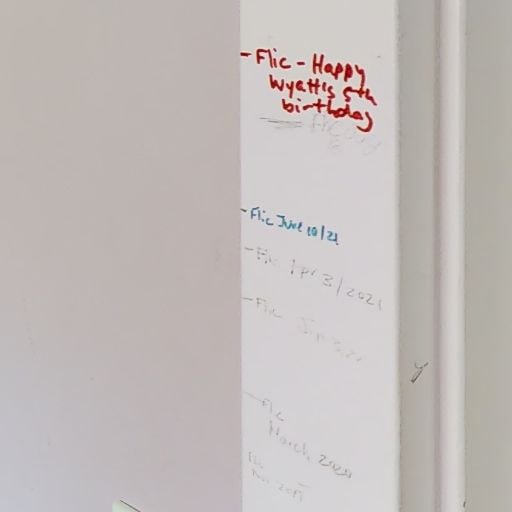 - Flic - Happy
Wyatt's 5th
birthday
- Flic June 10/21
- Flic Apr 3/2021
- Flic Jan
- Flic
March 2020